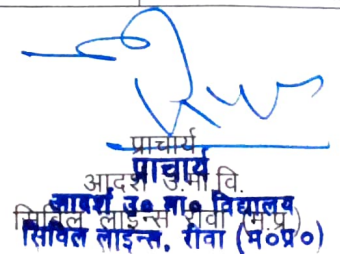 प्राचार्य
प्राचार्य
आदर्श उ.मा वि.
आदर्श उ० मा० विद्यालय
सिविल लाईन्स रीवा (म.प्र.)
सिविल लाइन्स, रीवा (म०प्र०)